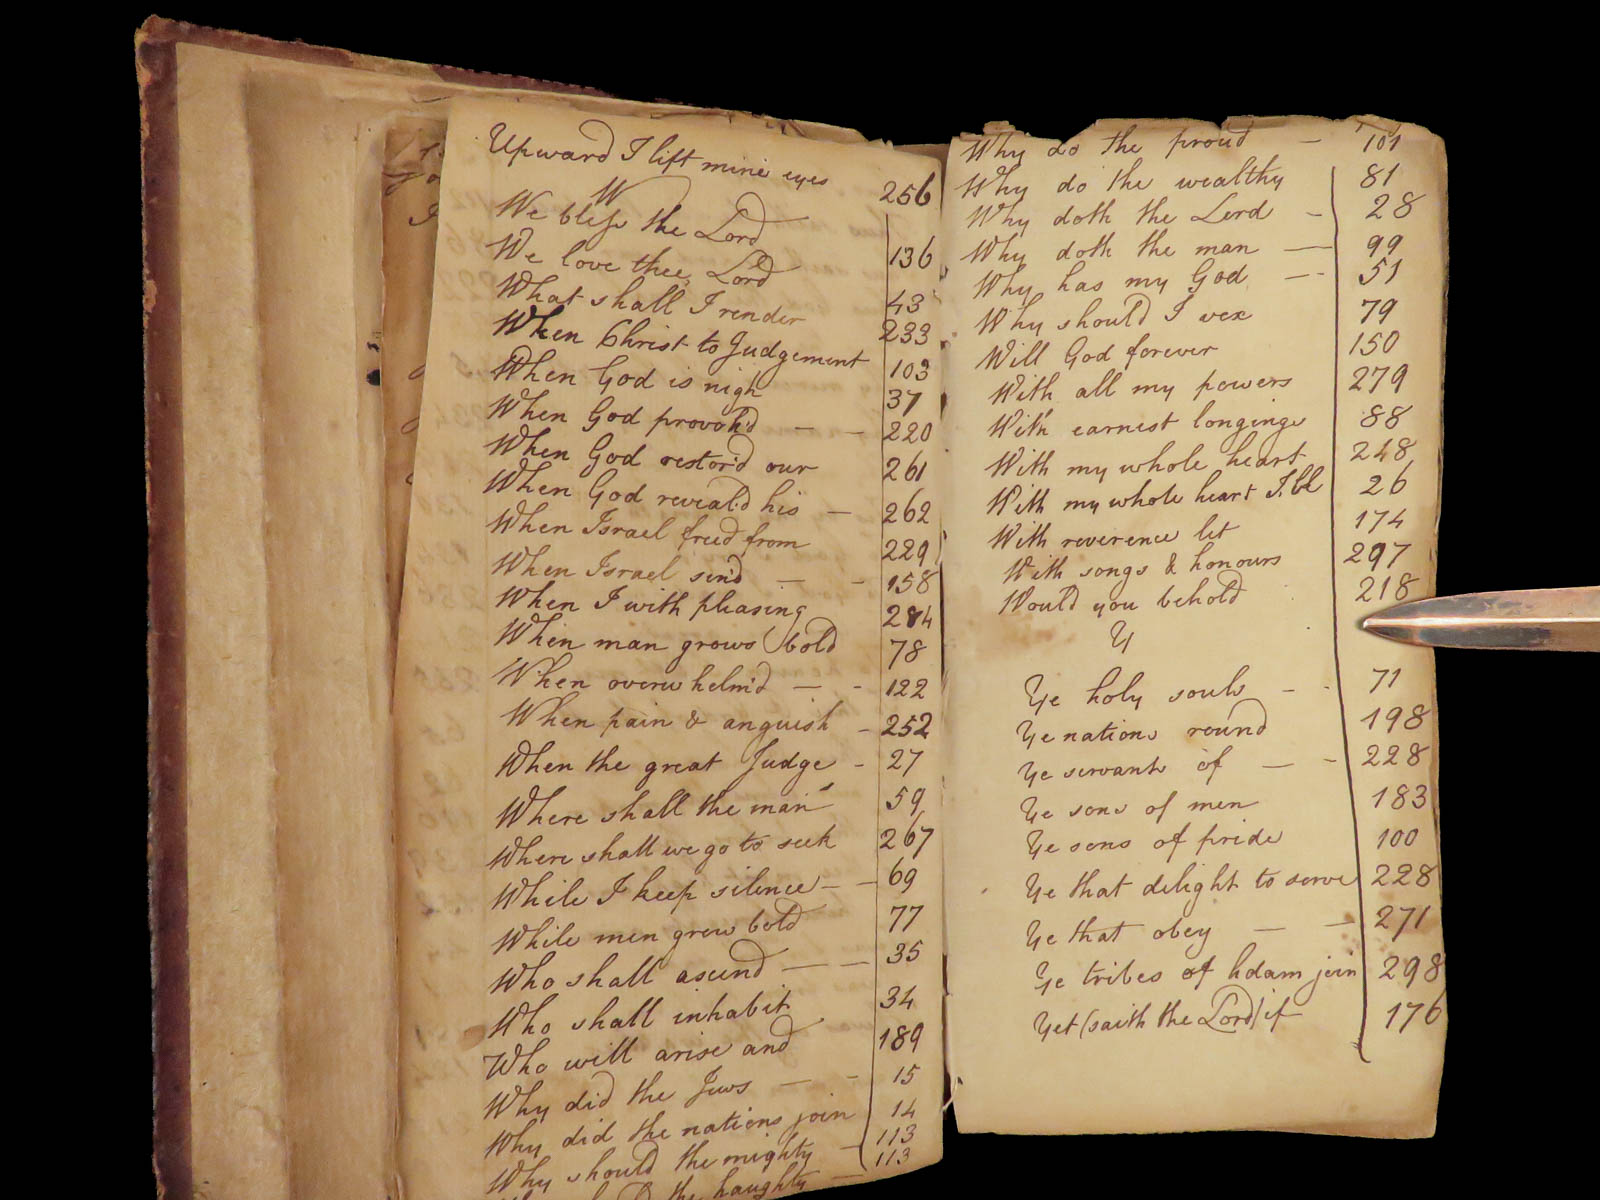 Upward I lift mine eyes 256
W
We bless the Lord 136
We love thee Lord 43
What shall I render 233
When Christ to Judgement 103
When God is nigh 37
When God provok'd — — 220
When God restor'd our 261
When God reveal'd his — 262
When Israel freed from 229
When Israel sins'd — - 158
When I with pleasing 284
When man grows bold 78
When overwhelm'd — - 122
When pain & anguish - 252
When the great Judge - 27
Where shall the man 59
Where shall we go to seek 267
While I keep silence — — 69
While men grow bold 77
Who shall ascend — — 35
Who shall inhabit 34
Who will arise and 189
Why did the Jews — - 15
Why did the nations join 14
Why should the mighty — 113
the haughty — 113
Why do the proud — 101
Why do the wealthy 81
Why doth the Lord - 28
Why doth the man — 99
Why has my God — - 51
Why should I vex 79
Will God forever 150
With all my powers 279
With earnest longings 88
With my whole heart 248
With my whole heart I.bl 26
With reverence let 174
With songs & honours 297
Would you behold 218
Y
Ye holy souls - - 71
Ye nations round 198
Ye servants of — - 228
Ye sons of men 183
Ye sons of pride 100
Ye that delight to serve 228
Ye that obey — — 271
Ye tribes of Adam join 298
Yet (saith the Lord) if 176